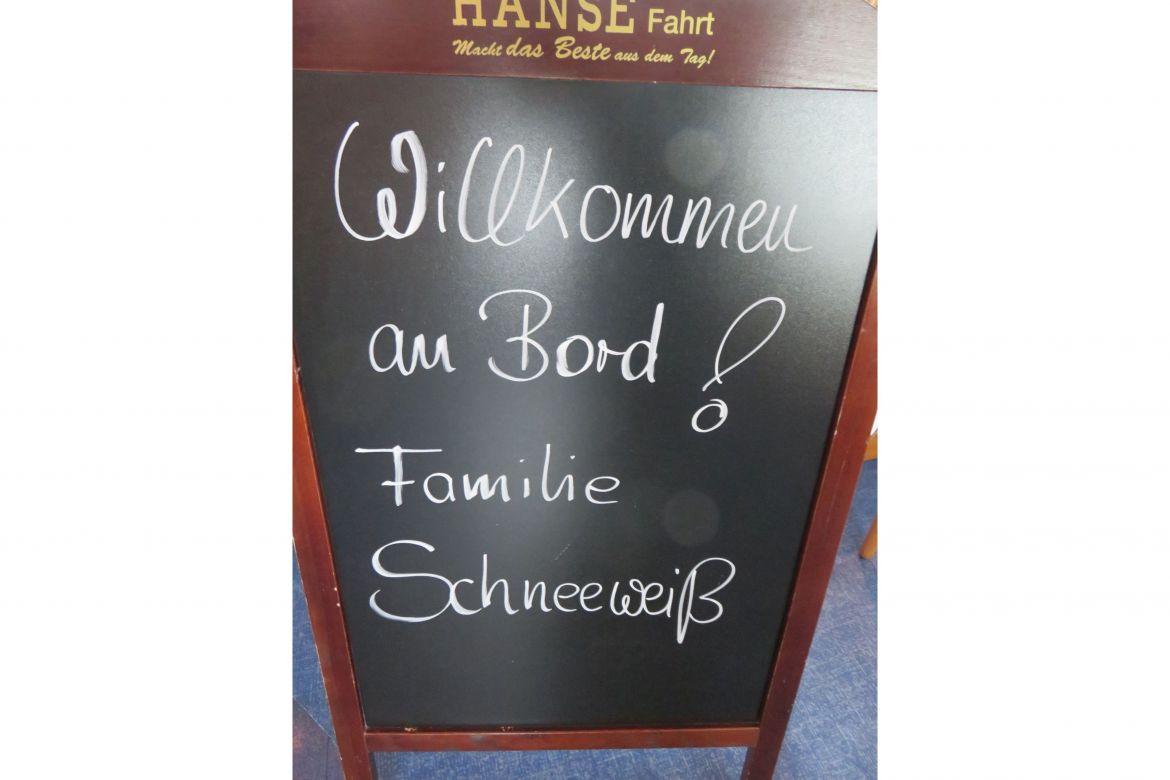 HANSE Fahrt
Macht das Beste aus dem Tag!
Willkommen
an Bord !
Familie
Schneeweiß